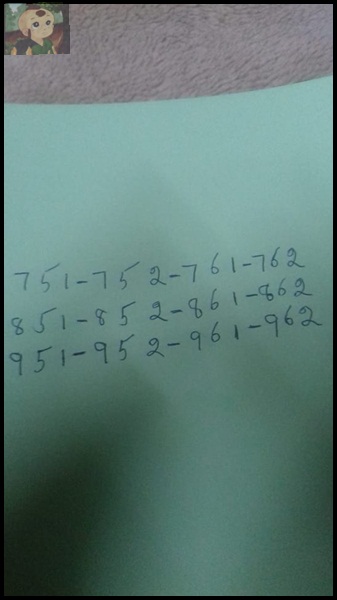 751-752-761-762
851-852-861-862
951-952-961-962